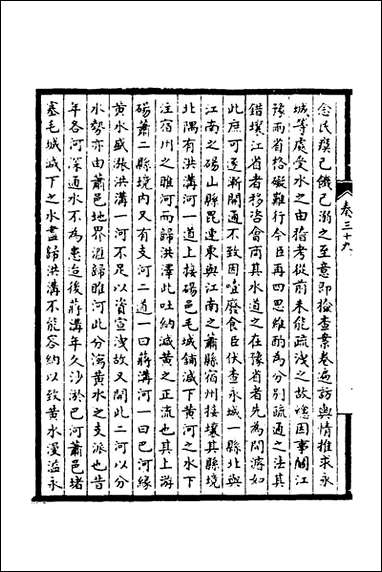 卷三十九
念民瘼己饑己溺之至意即檢查案卷遍訪輿情推求永
城等處受水之由稽考從前未能疏浚之故總因事關江
豫兩省格礙難行今臣再四思維酌為分別疏通之法其
錯壤江省者移咨會商其水道之在豫省者先為開濬如
此庶可逐漸開通不致因噎廢食臣伏查永城一縣北與
江南之碭山縣毘連東與江南之蕭縣宿州接壤其縣境
北隅有洪溝河一道上接碭邑毛城鋪減下黃河之水下
注宿州之睢河而歸洪澤此吐納減黃之正流也其上游
碭蕭二縣境內又有支河二道一曰蔣溝河一曰巴河緣
黃水盛漲洪溝一河不足以資宣洩故又開此二河以分
水勢亦由蕭邑地界滙歸睢河此分瀉黃水之支派也昔
年各河深通水不為患迨後蔣溝年久沙淤巴河蕭邑堵
塞毛城減下之水盡歸洪溝不能容納以致黃水漫溢永